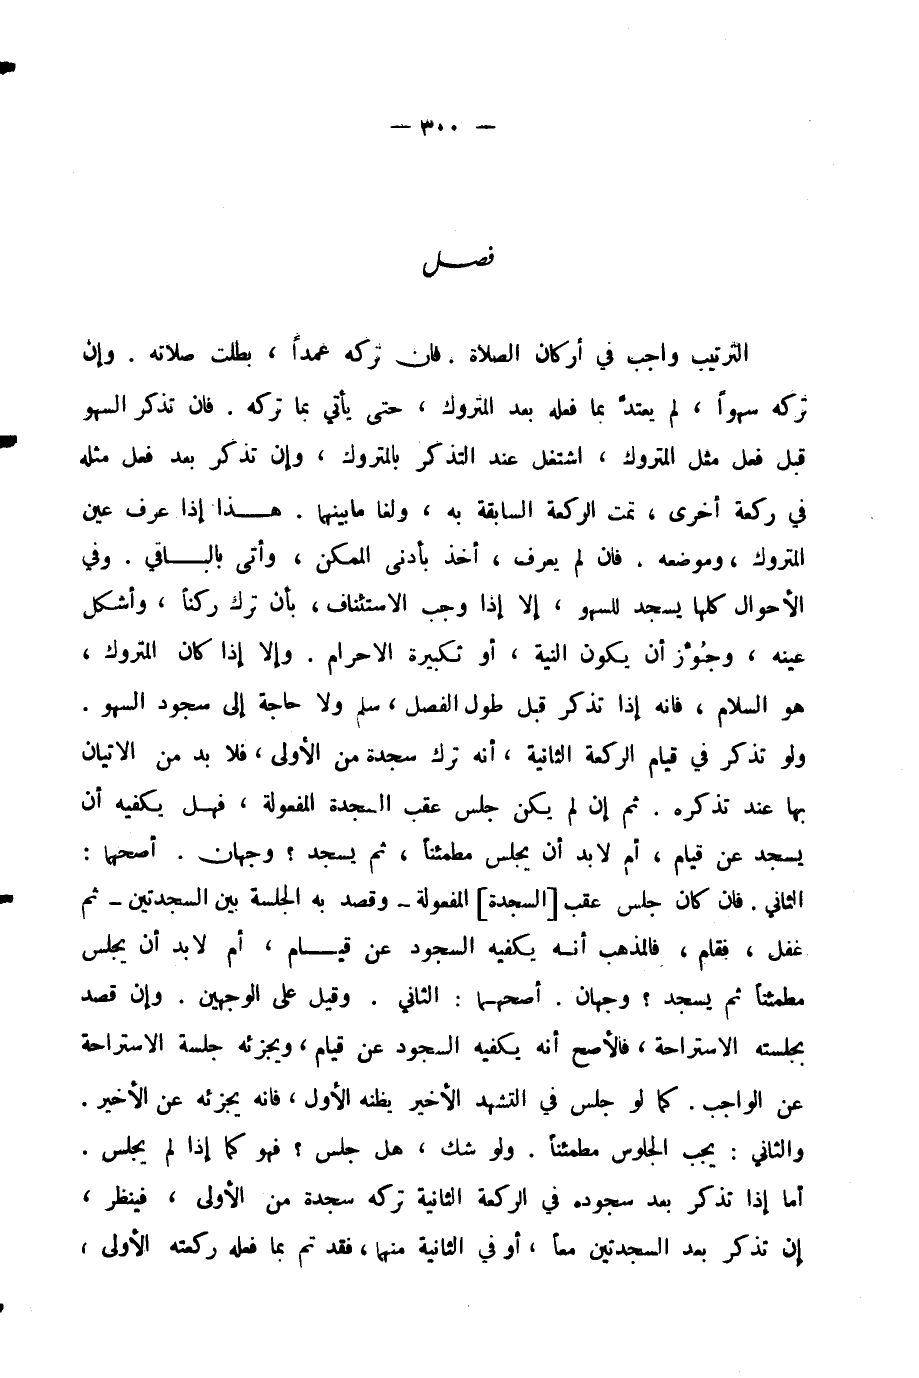 — ٣٠٠ —
فصل
الترتيب واجب في أركان الصلاة . فان تركه عمداً ، بطلت صلاته . وإن
تركه سهواً ، لم يعتدّ بما فعله بعد المتروك ، حتى يأتي بما تركه . فان تذكر السهو
قبل فعل مثل المتروك ، اشتغل عند التذكر بالمتروك ، وإن تذكر بعد فعل مثله
في ركعة أخرى ، تمت الركعة السابقة به ، ولغا مابينها . هذا إذا عرف عين
المتروك ، وموضعه . فان لم يعرف ، أخذ بأدنى الممكن ، وأتى بالباقي . وفي
الأحوال كلها يسجد للسهو ، إلا إذا وجب الاستئناف ، بأن ترك ركناً ، وأشكل
عينه ، وجُوّز أن يكون النية ، أو تكبيرة الاحرام . وإلا إذا كان المتروك ،
هو السلام ، فانه إذا تذكر قبل طول الفصل ، سلم ولا حاجة إلى سجود السهو .
ولو تذكر في قيام الركعة الثانية ، أنه ترك سجدة من الأولى ، فلا بد من الاتيان
بها عند تذكره . ثم إن لم يكن جلس عقب السجدة المفعولة ، فهل يكفيه أن
يسجد عن قيام ، أم لا بد أن يجلس مطمئناً ، ثم يسجد ؟ وجهان . أصحها :
الثاني . فان كان جلس عقب [السجدة] المفعولة ـ وقصد به الجلسة بين السجدتين ـ ثم
غفل ، فقام ، فالمذهب أنه يكفيه السجود عن قيام ، أم لا بد أن يجلس
مطمئناً ثم يسجد ؟ وجهان . أصحهما : الثاني . وقيل على الوجهين . وإن قصد
بجلسته الاستراحة ، فالأصح أنه يكفيه السجود عن قيام ، ويجزئه جلسة الاستراحة
عن الواجب . كما لو جلس في التشهد الأخير يظنه الأول ، فانه يجزئه عن الأخير .
والثاني : يجب الجلوس مطمئناً . ولو شك ، هل جلس ؟ فهو كما إذا لم يجلس .
أما إذا تذكر بعد سجوده في الركعة الثانية تركه سجدة من الأولى ، فينظر ،
إن تذكر بعد السجدتين معاً ، أو في الثانية منها ، فقد تم بما فعله ركعته الأولى ،